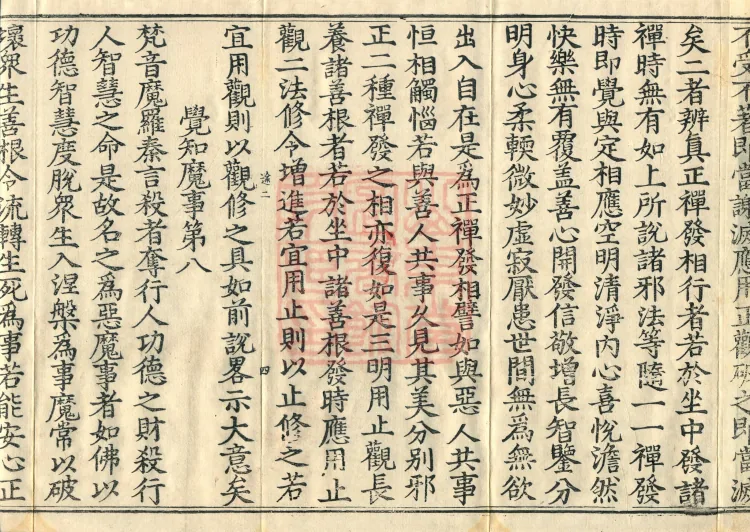 不受不著即當謝滅應用正觀破之即當滅
矣二者辨真正禪發相行者若於坐中發諸
禪時無有如上所說諸邪法等隨一一禪發
時即覺與定相應空明清淨內心喜悅澹然
快樂無有覆蓋善心開發信敬增長智鑒分
明身心柔輭微妙虛寂厭患世間無為無欲
出入自在是為正禪發相譬如與惡人共事
恒相觸惱若與善人共事久見其美分別邪
正二種禪發之相亦復如是三明用止觀長
養諸善根者若於坐中諸善根發時應用止
觀二法修令增進若宜用止則以止修之若
宜用觀則以觀修之具如前說畧示大意矣
覺知魔事第八
梵音魔羅秦言殺者奪行人功德之財殺行
人智慧之命是故名之為惡魔事者如佛以
功德智慧度脫眾生入涅槃為事魔常以破
壞眾生善根令流轉生死為事若能安心正